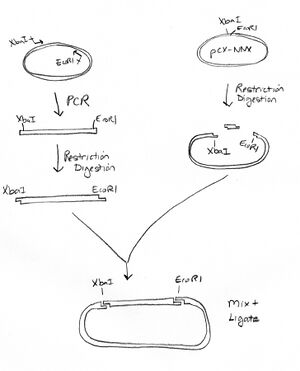 XbaI
EcoRI
PCR
XbaI
EcoRI
Restriction
Digestion
XbaI
EcoRI
XbaI
EcoRI
pCX-NNX
Restriction
Digestion
XbaI
EcoRI
XbaI
EcoRI
Mix +
Ligate